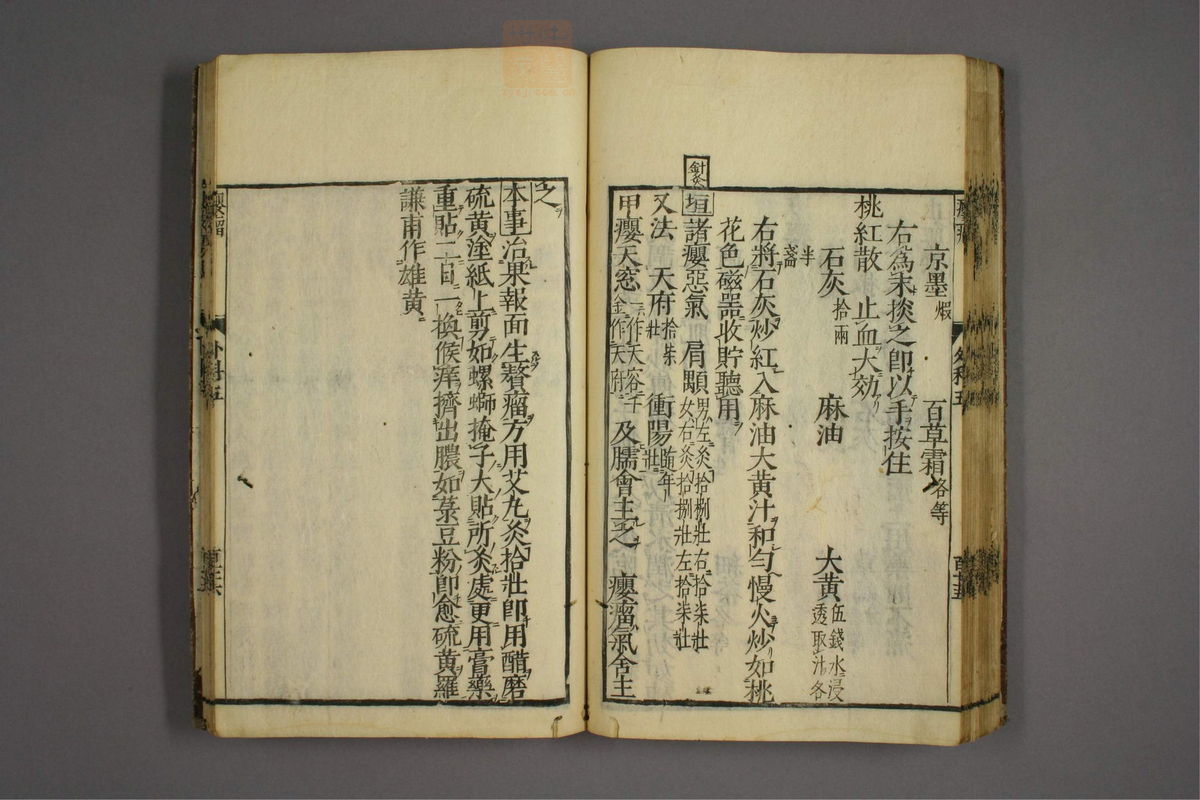 京墨煆 百草霜各等
右爲末摻之卽以手按住
桃紅散 止血大效
石灰拾兩 麻油 大黃伍錢水浸透取汁各
半盞
右將石灰炒紅入麻油大黃汁和勻慢火炒如桃
花色磁器收貯聽用
針灸
垣諸癭惡氣 肩髃男左灸拾捌壯右拾柒壯女右灸拾捌壯左拾柒壯
又法 天府拾柒壯 衝陽隨年壯
甲癭天窓一作天容千金作天府及臑會主之 癭瘤氣舍主
之
本事治果報面生贅瘤方用艾丸灸拾壯卽用醋磨
硫黃塗紙上剪如螺螄掩子大貼所灸處更用膏藥
重貼二日一換候痒擠出膿如菉豆粉卽愈硫黃羅
謙甫作雄黃
外科五